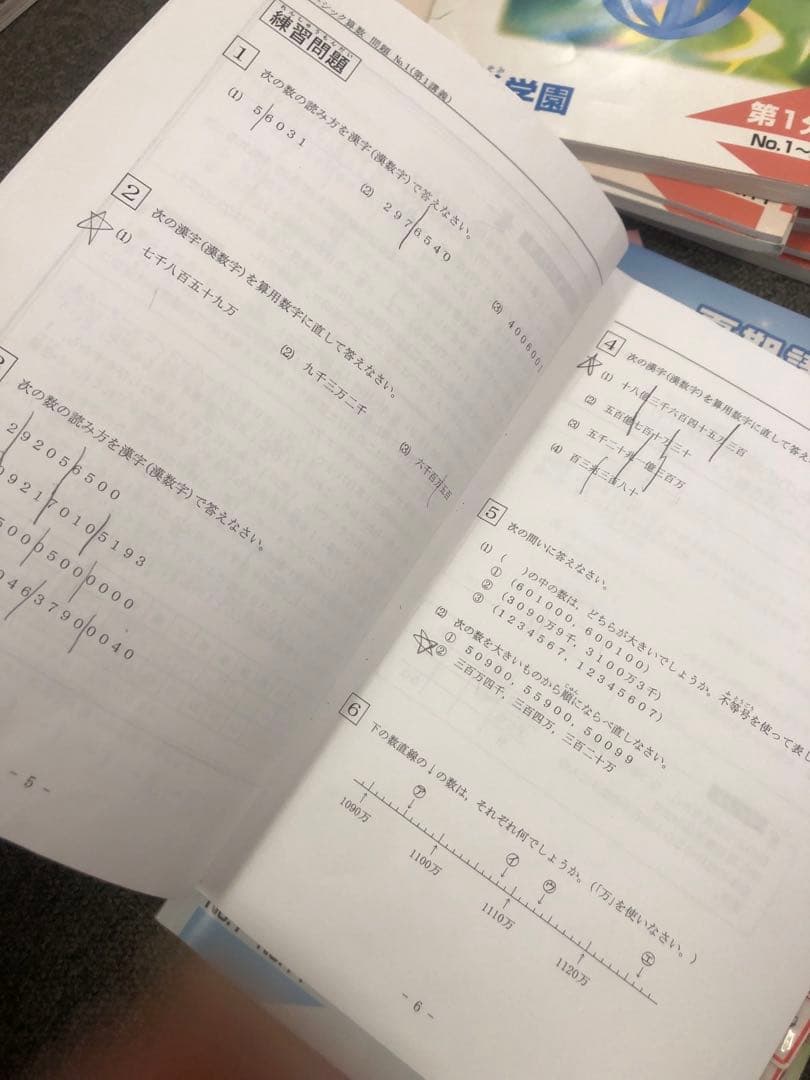 ーシック算数 問題 No.1(第1講義)
れんしゅうもんだい
練習問題
1 次の数の読み方を漢字(漢数字)で答えなさい。
(1) 56031
(2) 2976540
(3) 4006001
2 次の漢字(漢数字)を算用数字に直して答えなさい。
(1) 七千八百五十九万
(2) 九千三万二千
(3) 六千百万五百
次の数の読み方を漢字(漢数字)で答えなさい。
292056500
092170105193
50005000000
04637900040
- 5 -
4 次の漢字(漢数字)を算用数字に直して答え
(1) 十八億三千六百四十五万三百
(2) 五百億七百十万三十
(3) 五千二十兆一億三百万
(4) 百三兆三百八十
5 次の問いに答えなさい。
(1) ( )の中の数は、どちらが大きいでしょうか。不等号を使って表し
① (601000, 600100)
② (3090万9千, 3100万3千)
③ (1234567, 12345607)
(2) 次の数を大きいものから順にならべ直しなさい。
① 50900, 55900, 50099
② 三百万四千, 三百四万, 三百二十万
6 下の数直線の↓の数は、それぞれ何でしょうか。(「万」を使いなさい。)
㋐ ㋑ ㋒ ㋓
1090万 1100万 1110万 1120万
- 6 -
学園
第1分
No.1～